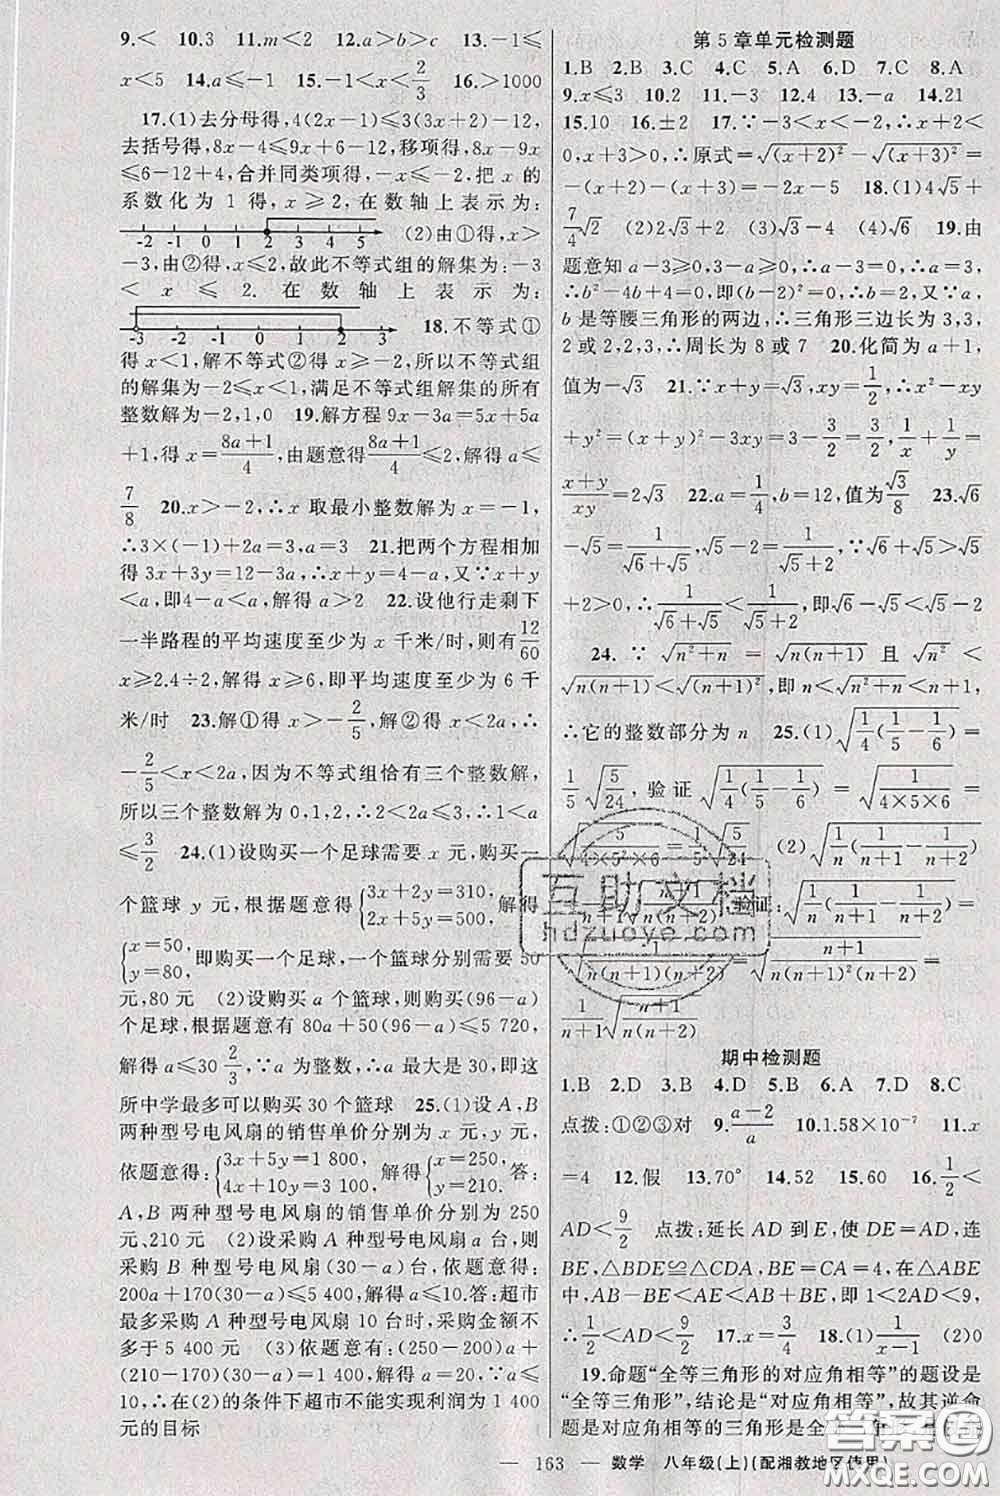 9.< 10.3 11.m<2 12.a>b>c 13.-1≤
x<5 14.a≤-1 15.-1<x<2/3 16.>1000
17.(1)去分母得,4(2x-1)≤3(3x+2)-12,
去括号得,8x-4≤9x+6-12,移项得,8x-9x
≤6-12+4,合并同类项得,-x≤-2,把 x 的
系数化为 1 得,x≥2,在数轴上表示为:
-2 -1 0 1 2 3 4 5 (2)由①得,x>
-3,由②得,x≤2,故此不等式组的解集为:-3
<x≤2.在数轴上表示为:
-3 -2 -1 0 1 2 3 18.不等式①
得 x<1,解不等式②得 x≥-2,所以不等式组
的解集为-2≤x<1,满足不等式组解集的所有
整数解为-2,-1,0 19.解方程 9x-3a=5x+5a
+1,得 x=(8a+1)/4,由题意得(8a+1)/4≤2,解得 a≤
7/8 20.x>-2,∴x 取最小整数解为 x=-1,
∴3×(-1)+2a=3,a=3 21.把两个方程相加
得 3x+3y=12-3a,∴x+y=4-a,又∵x+y
<a,即4-a<a,解得 a>2 22.设他行走剩下
一半路程的平均速度至少为 x 千米/时,则有12/60
x≥2.4÷2,解得 x≥6,即平均速度至少为 6 千
米/时 23.解①得 x>-2/5,解②得 x<2a,∴
-2/5<x<2a,因为不等式组恰有三个整数解,
所以三个整数解为 0,1,2,∴2<2a≤3,∴1<a
≤3/2 24.(1)设购买一个足球需要 x 元,购买一
个篮球 y 元,根据题意得{3x+2y=310, 2x+5y=500,解得
{x=50, y=80,即购买一个足球,一个篮球分别需要 50
元,80 元 (2)设购买 a 个篮球,则购买(96-a)
个足球,根据题意有 80a+50(96-a)≤5 720,
解得 a≤30 2/3,∵a 为整数,∴a 最大是 30,即这
所中学最多可以购买 30 个篮球 25.(1)设 A,B
两种型号电风扇的销售单价分别为 x 元,y 元,
依题意得:{3x+5y=1 800, 4x+10y=3 100,解得{x=250, y=210.答:
A,B 两种型号电风扇的销售单价分别为 250
元、210 元 (2)设采购 A 种型号电风扇 a 台,则
采购 B 种型号电风扇(30-a)台,依题意得:
200a+170(30-a)≤5 400,解得 a≤10.答:超市
最多采购 A 种型号电风扇 10 台时,采购金额不
多于 5 400 元 (3)依题意有:(250-200)a+
(210-170)(30-a)=1 400,解得 a=20,∵a≤
10,∴在(2)的条件下超市不能实现利润为 1 400
元的目标
第 5 章单元检测题
1.B 2.B 3.C 4.C 5.A 6.D 7.C 8.A
9.x≤3 10.2 11.-3 12.4 13.-a 14.21
15.10 16.±2 17.∵-3<x<-2,∴x+2<
0,x+3>0,∴原式=√(x+2)²-√(x+3)²
=-(x+2)-(x+3)=-2x-5 18.(1)4√5+
7/4√2 (2)√3+2 (3)-6 (4)√6 19.由
题意知 a-3≥0,3-a≥0,∴a-3=0,∴a=3,
∴b²-4b+4=0,即(b-2)²=0,∴b=2,又∵a,
b 是等腰三角形的两边,∴三角形三边长为 3,3,
2 或 2,2,3,∴周长为 8 或 7 20.化简为 a+1,
值为-√3 21.∵x+y=√3,xy=1/2,∴x²-xy
+y²=(x+y)²-3xy=3-3/2=3/2,1/x+1/y=
(x+y)/xy=2√3 22.a=1/4,b=12,值为√3/8 23.√6
-√5=1/(√6+√5),√5-2=1/(√5+2),∵√6+√5>√5
+2>0,∴1/(√6+√5)<1/(√5+2),即√6-√5<√5-2
24.∵√(n²+n)=√(n(n+1))且√n²<
√(n(n+1))<√(n+1)²,即 n<√(n²+n)<n+1,
∴它的整数部分为 n 25.(1)√(1/4(1/5-1/6))=
1/5√(5/24),验证√(1/4(1/5-1/6))=√(1/(4×5×6))=
√(5/(4×5²×6))=1/5√(5/24) (2)√(1/n(1/(n+1)-1/(n+2)))
=1/(n+1)√((n+1)/(n(n+2))),验证:√(1/n(1/(n+1)-1/(n+2)))
=√(1/(n(n+1)(n+2)))=√((n+1)/(n(n+1)²(n+2)))=
1/(n+1)√((n+1)/(n(n+2)))
期中检测题
1.B 2.D 3.B 4.D 5.B 6.A 7.D 8.C
点拨:①②③对 9.(a-2)/a 10.1.58×10⁻⁷ 11.x
=4 12.假 13.70° 14.52 15.60 16.1/2<
AD<9/2 点拨:延长 AD 到 E,使 DE=AD,连
BE,△BDE≌△CDA,BE=CA=4,在△ABE
中,AB-BE<AE<AB+BE,即 1<2AD<9,
∴1/2<AD<9/2 17.x=3/4 18.(1)1/(x-1) (2)0
19.命题“全等三角形的对应角相等”的题设是
“全等三角形”,结论是“对应角相等”,故其逆命
题是对应角相等的三角形是全等
— 163 — 数学 八年级(上)(配湘教地区使用)
互助文档
hdzuoye.com
答案圈
MXQE.COM